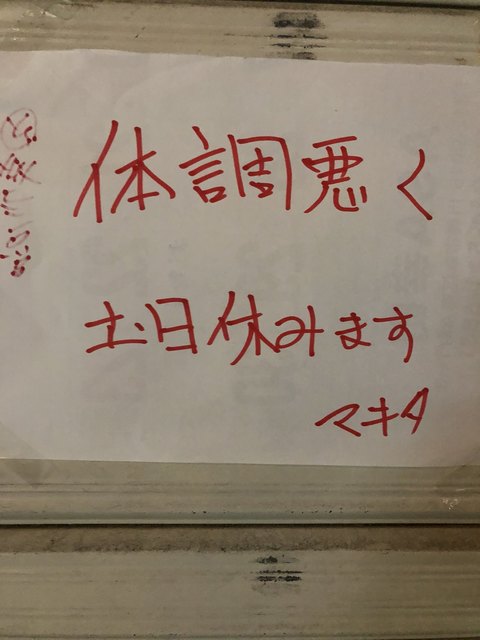 体調悪く
土日休みます
マキタ